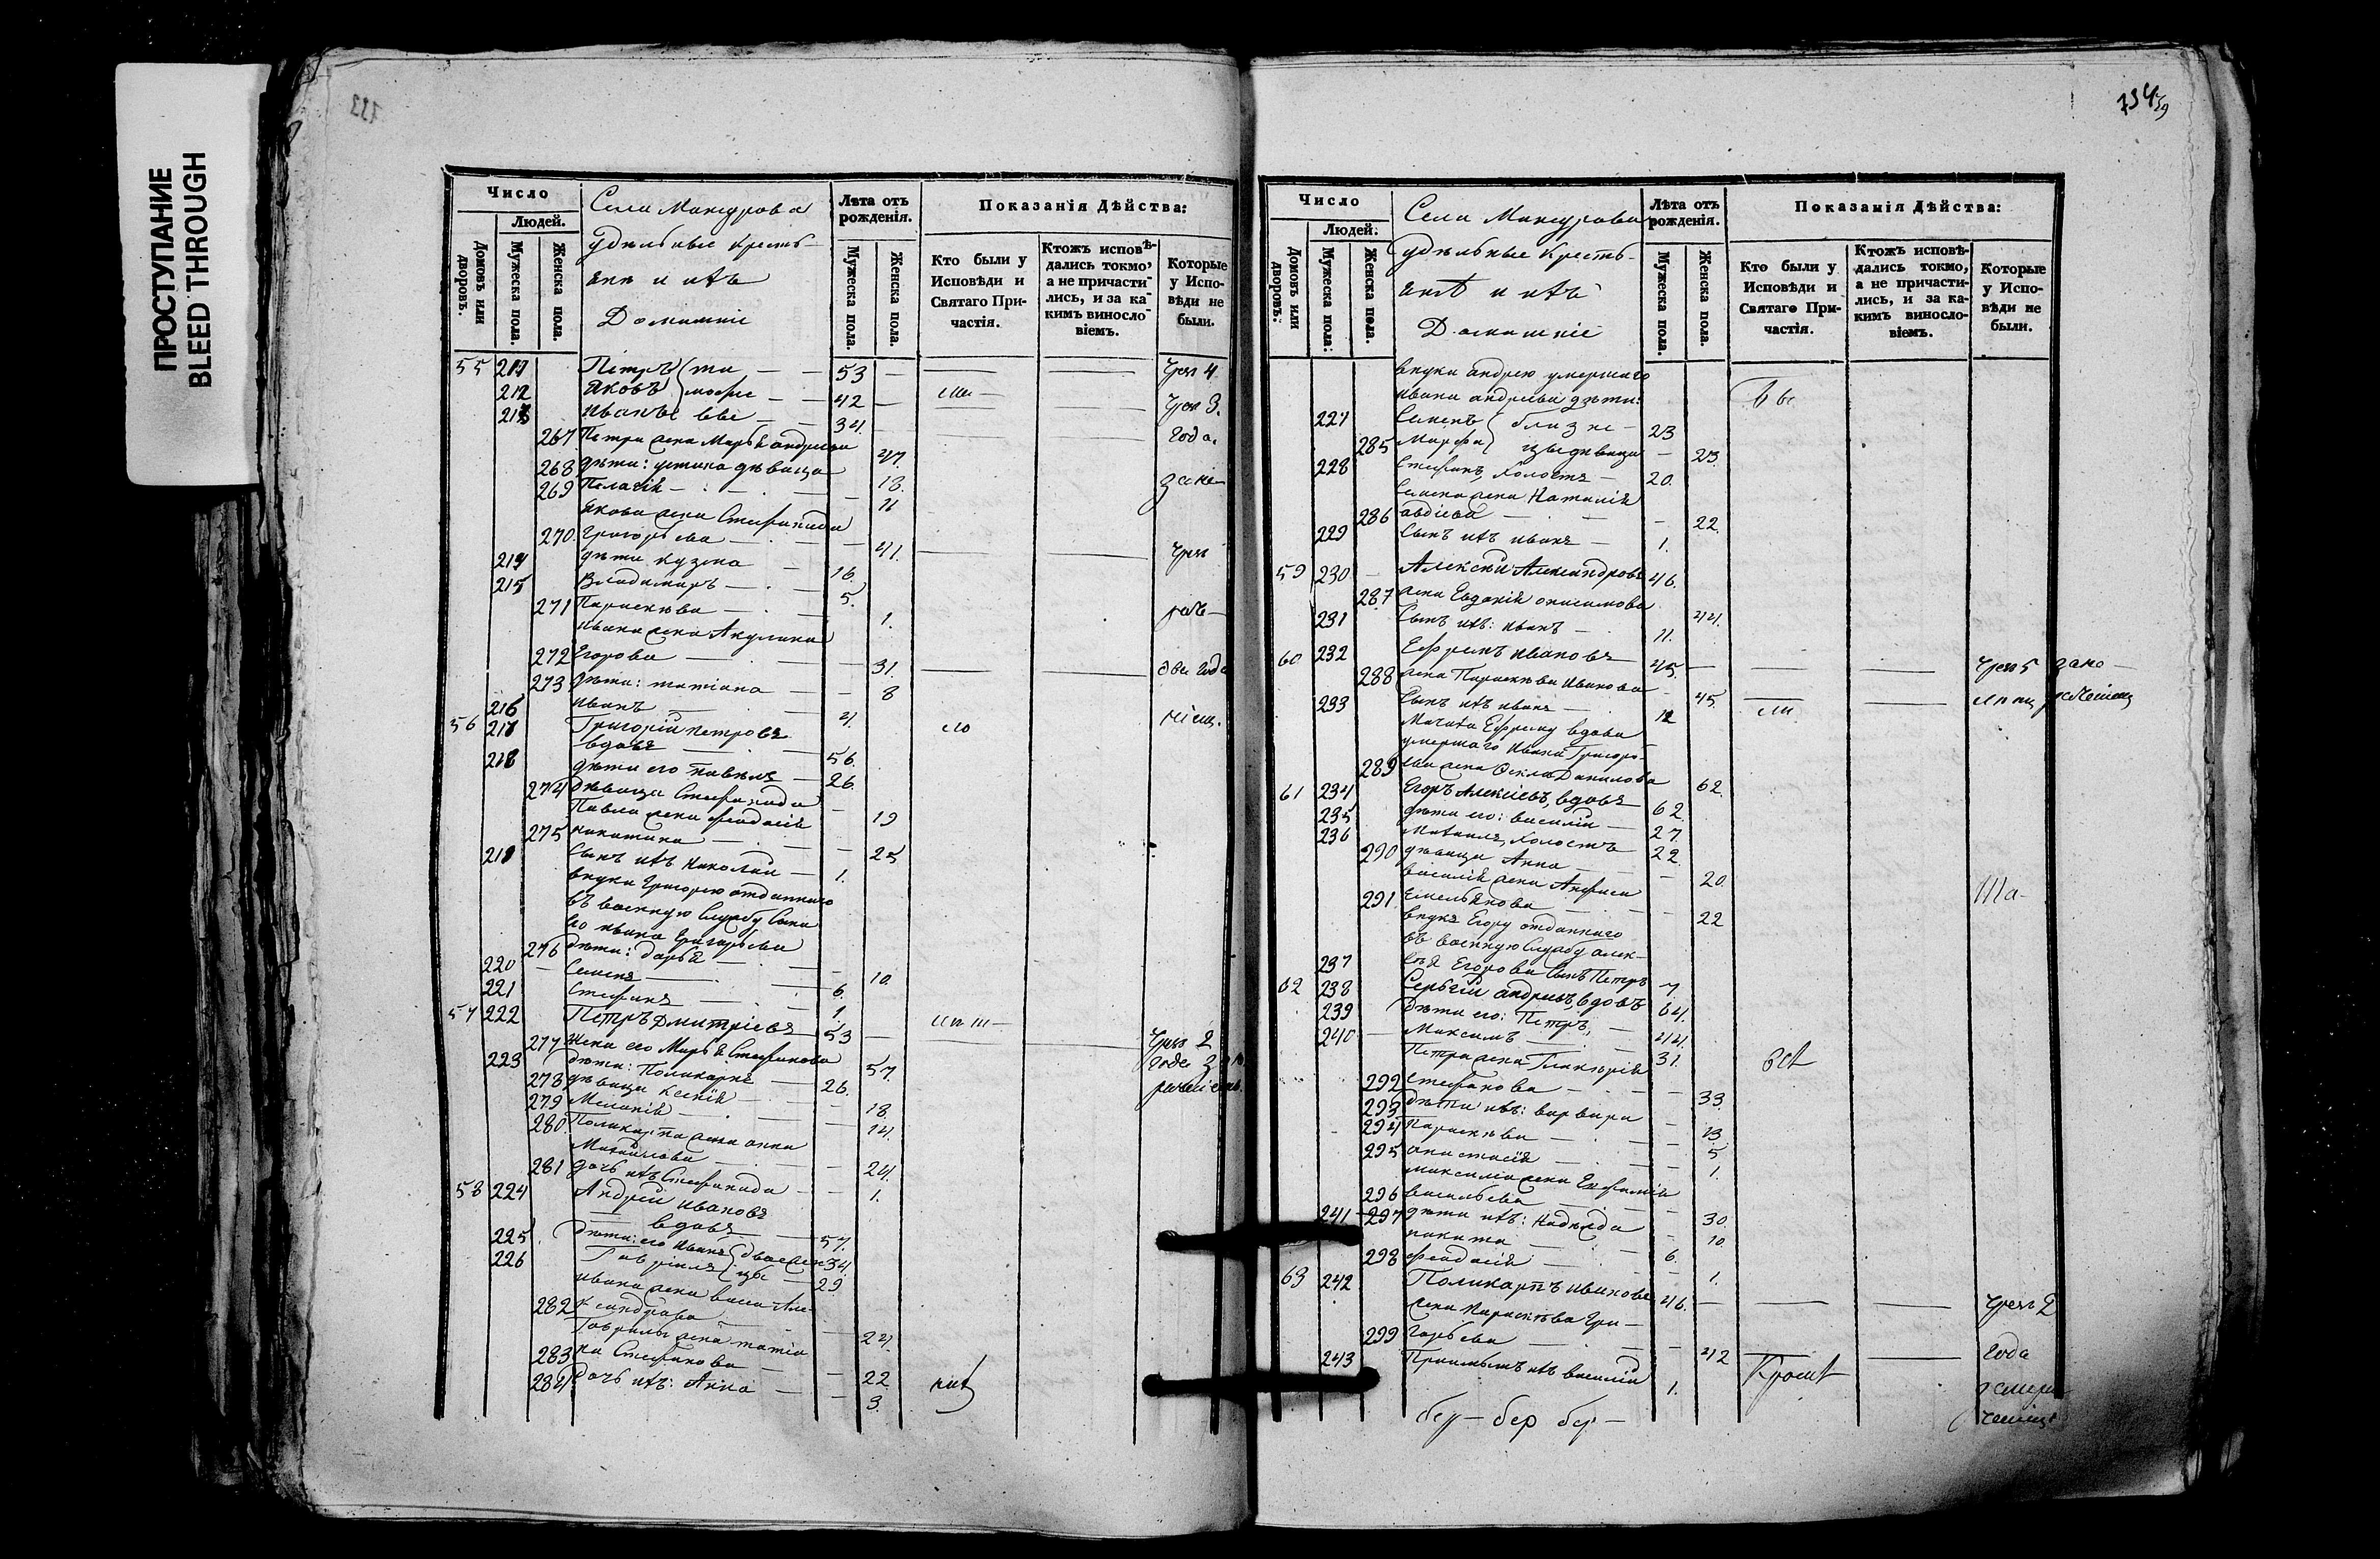 ПРОСТУПАНИЕ
BLEED THROUGH
133
Число
Людей.
Домовъ или дворовъ.
Мужеска пола.
Женска пола.
Села Мансурова
удѣльные кресть-
яне и ихъ
Домашніе
Лѣта отъ рожденія.
Мужеска пола.
Женска пола.
Показанія Дѣйства:
Кто были у Исповѣди и Святаго Причастія.
Ктожъ исповѣдались токмо, а не причастились, и за какимъ винословіемъ.
Которые у Исповѣди не были.
55 211 Петръ 53
212 Яковъ 42
213 Иванъ 34
267 Петра жена Марья Андреева 47.
268 дѣти: устина дѣвица 18.
269 Пелагія 11
Якова жена Стефанида
270. Григорьева 41.
214 дѣти Кузма 16.
215 Владимиръ 5.
271 Параскѣва 1.
Ивана жена Акулина
272 Егорова 31. два года
273 дѣти: татіана 8
216 иванъ 4.
56 217 Григорій Петровъ
вдовъ 56.
218 дѣти его Павелъ 26.
274 дѣвица Стефанида 19
Павла жена Феодосія
275 никитина 25
219 Сынъ ихъ Николай 1.
внуки Григорію отданнаго
въ военную службу сына
его ивана Григорьева
276 дѣти: дарья 10.
220 Семенъ 6.
221 Стефанъ 1.
57 222 Петръ Дмитріевъ 53
277 Жена его Марья Стефанова 57.
223 дѣти: Поликарпъ 26.
278 дѣвица Ксенія 18.
279 Меланія 14.
280. Поликарпа жена анна
Михайлова 24.
281 дочь ихъ Стефанида 1.
58 224 Андрей ивановъ
вдовъ 57.
225 Дѣти: его иванъ 34.
226 Гавріилъ 29
ивана жена васса Але-
282 ксандрова 24.
Гаврилы жена татіа
283 на Стефанова 22
284 дочь ихъ: Анна 3.
734
Число
Людей:
Домовъ или дворовъ:
Мужеска пола:
Женска пола.
Села Мансурова
удѣльные кресть-
янѣ и ихъ
Домашніе
Лѣта отъ рожденія.
Мужеска пола.
Женска пола.
Показанія Дѣйства:
Кто были у Исповѣди и Святаго Причастія.
Ктожъ исповѣдались токмо, а не причастились, и за какимъ винословіемъ.
Которые у Исповѣди не были.
внуки андрею умершаго
ивана андреева дѣти:
227 Семенъ близне- 23
285 Марфа цы дѣвица 23.
228 Стефанъ, холостъ 20.
Семена жена Наталія
286 авдіева 22.
229 Сынъ ихъ иванъ 1.
59 230 Алексѣй Александровъ 46.
287 жена Евдокія онисимова 44.
231 Сынъ ихъ: иванъ 11.
60 232 Ефремъ ивановъ 45.
288 жена Параскѣва Иванова 45.
233 Сынъ ихъ иванъ 12
Мачиха Ефрему вдова
умершаго ивана Григорь-
289 ева жена Фекла Данилова 62.
61 234 Егоръ Алексіевъ, вдовъ 62.
235 дѣти его: василій 27.
236 Михаилъ, холостъ 22.
290 дѣвица Анна 20.
василія жена Анфиса
291 Емельянова 22
внукъ Егору отданнаго
въ военную службу алек-
237 сѣя Егорова сынъ Петръ 7.
62 238 Сергѣй андреевъ, вдовъ 64.
239 Дѣти его: Петръ, 44.
240 Максимъ 31.
Петра жена Гликерія
292 Стефанова 33.
293 дѣти ихъ: варвара 13.
294 Параскѣва 5
295 анастасія 1.
максима жена Евфимія
296 васильева 30.
297 дѣти ихъ: Надежда 10.
241 никита 6.
298 феодосія 1.
63 242 Поликарпъ ивановъ 46.
жена Параскѣва Гри-
299 горьева 42
243 Пріимышъ ихъ василій 1.